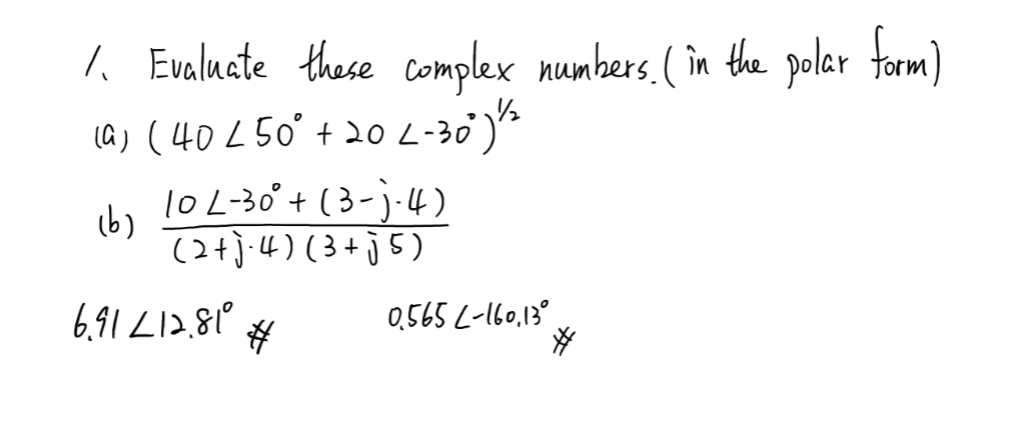 1. Evaluate these complex numbers. (in the polar form)
(a) (40∠50° + 20∠-30°)^1/2
(b) 10∠-30° + (3-j·4)
(2+j·4)(3+j5)
6.91∠12.81° # 0.565∠-160.13° #